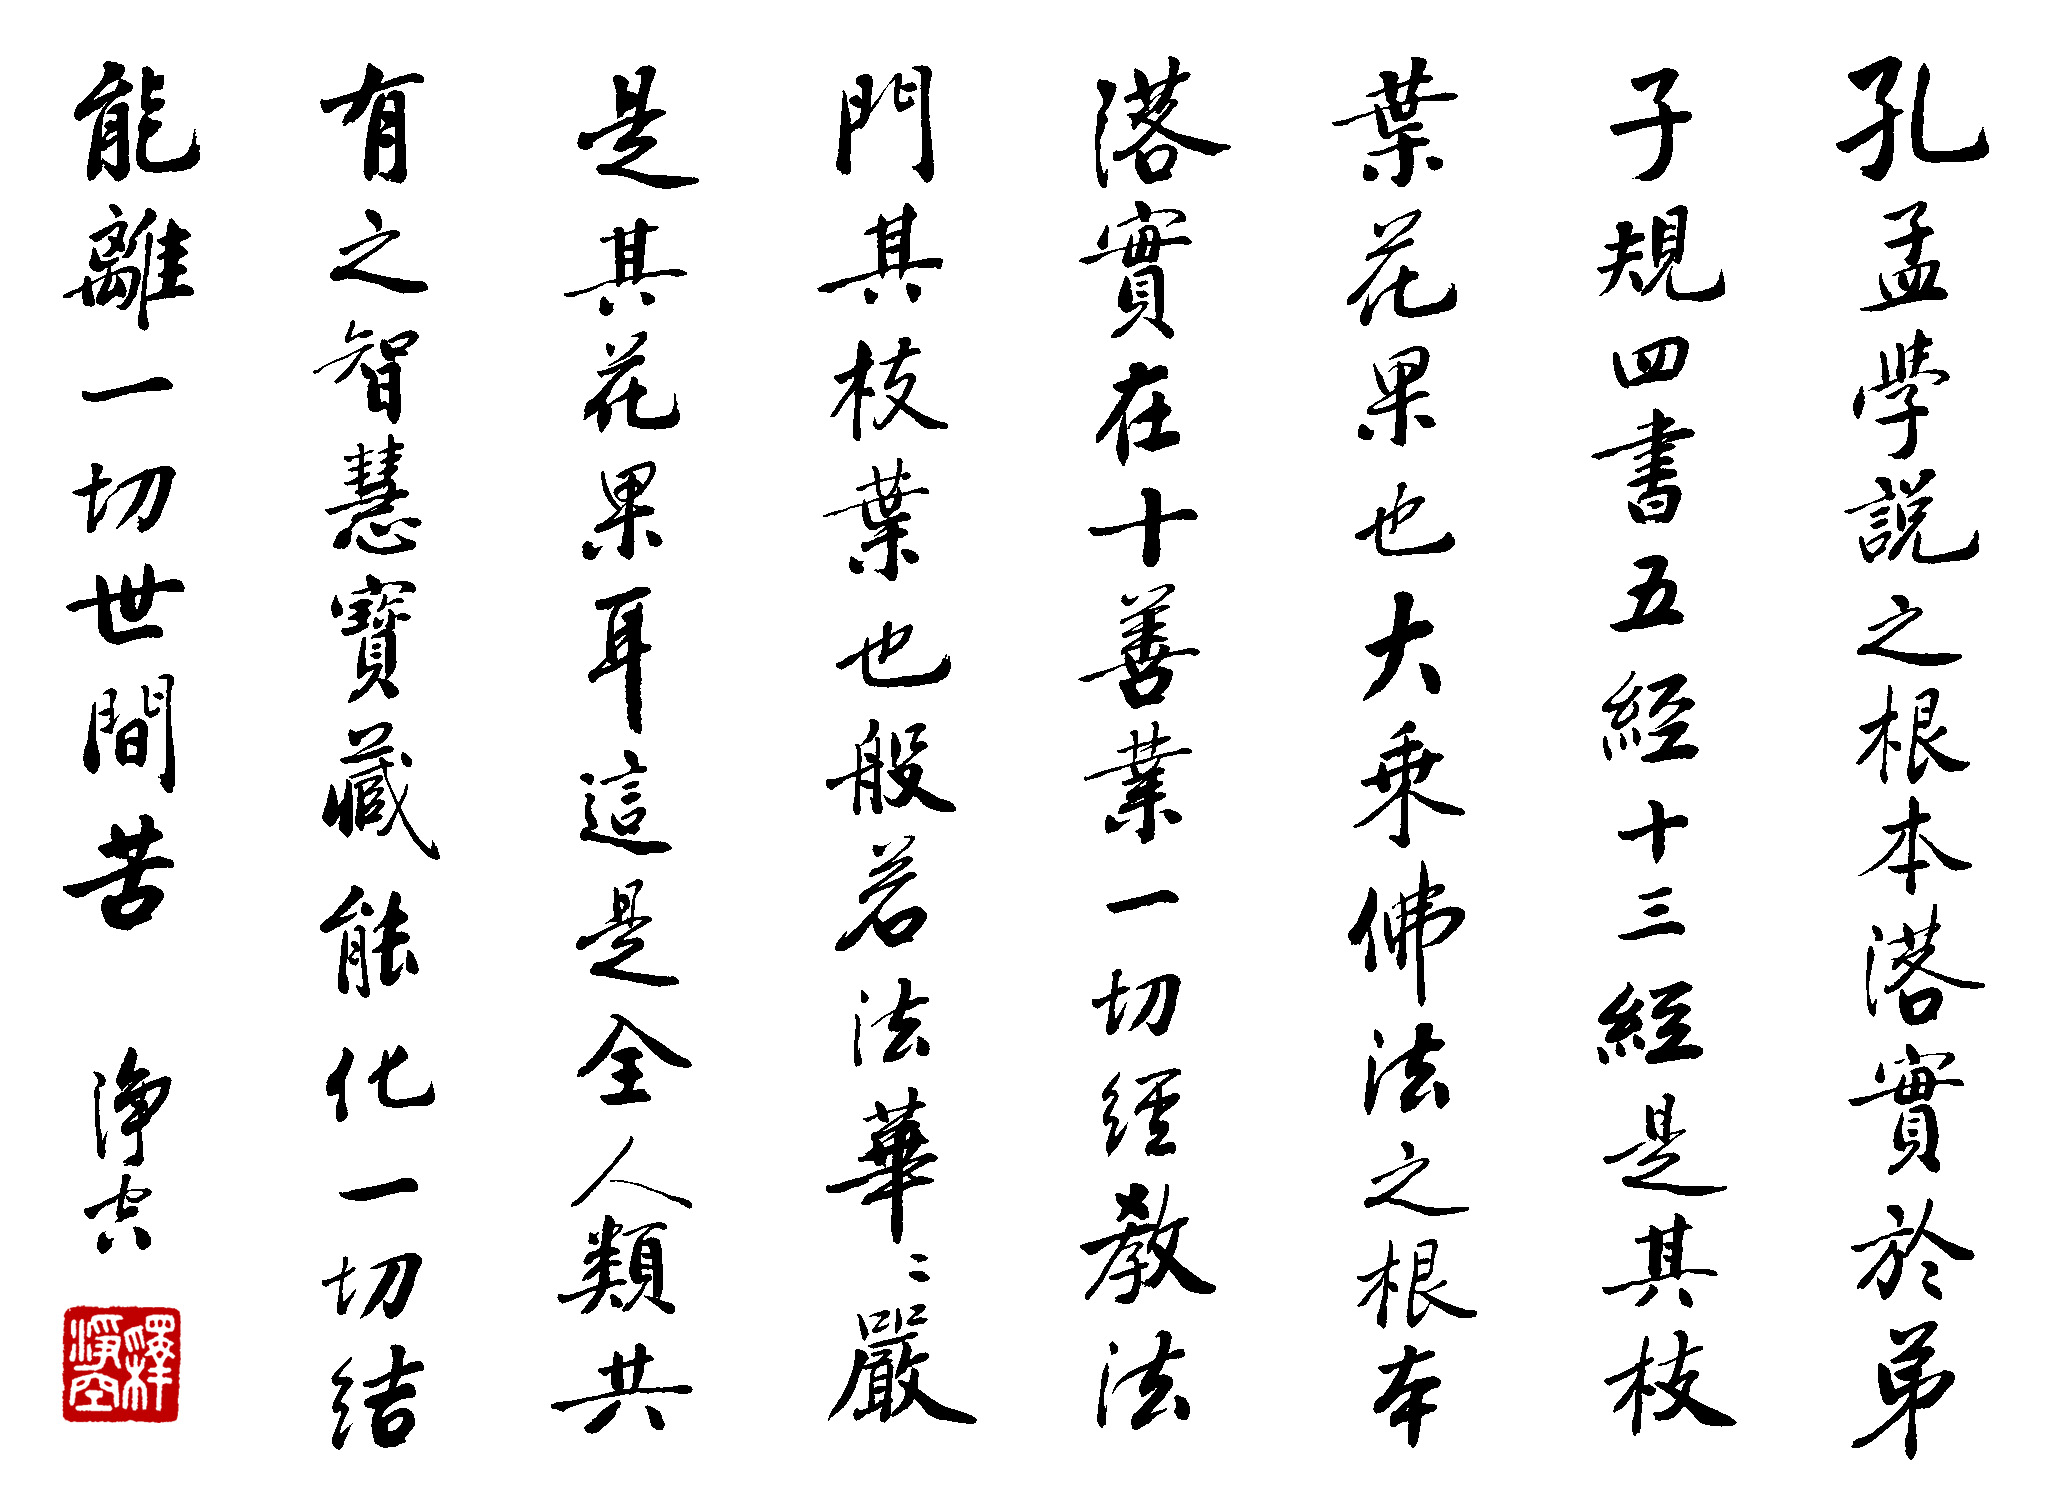 孔孟學説之根本落實於弟
子規四書五經十三經是其枝
葉花果也大乘佛法之根本
落實在十善業一切經教法
門其枝葉也般若法華華嚴
是其花果耳這是全人類共
有之智慧寶藏能化一切結
能離一切世間苦 淨空
釋淨空